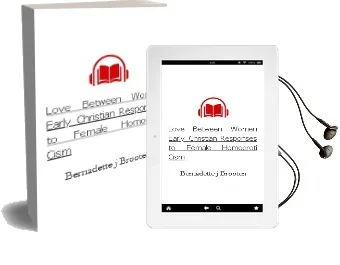 Love Between Wo
Early Christian Respon
to Female Homo
Cism
Bernadette j Brooten
Love Between Women
Early Christian Responses
to Female Homoeroti
Cism
Bernadette j Brooten